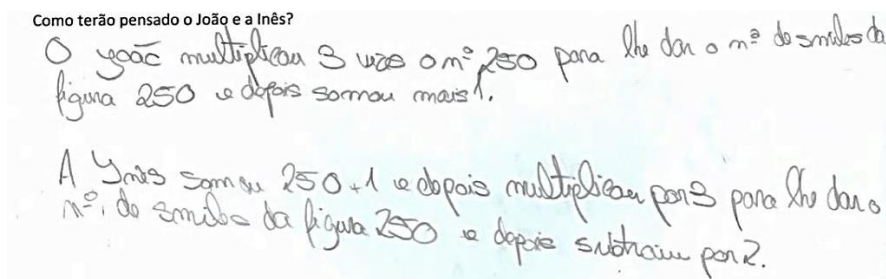 Como terão pensado o João e a Inês?
O João multiplicou 3 vezes o nº 250 para lhe dar o nº de smiles da
figura 250 e depois somou mais 1.
A Ynês somou 250+1 e depois multiplicou por 3 para lhe dar o
nº. de smiles da figura 250 e depois subtraiu por 2.